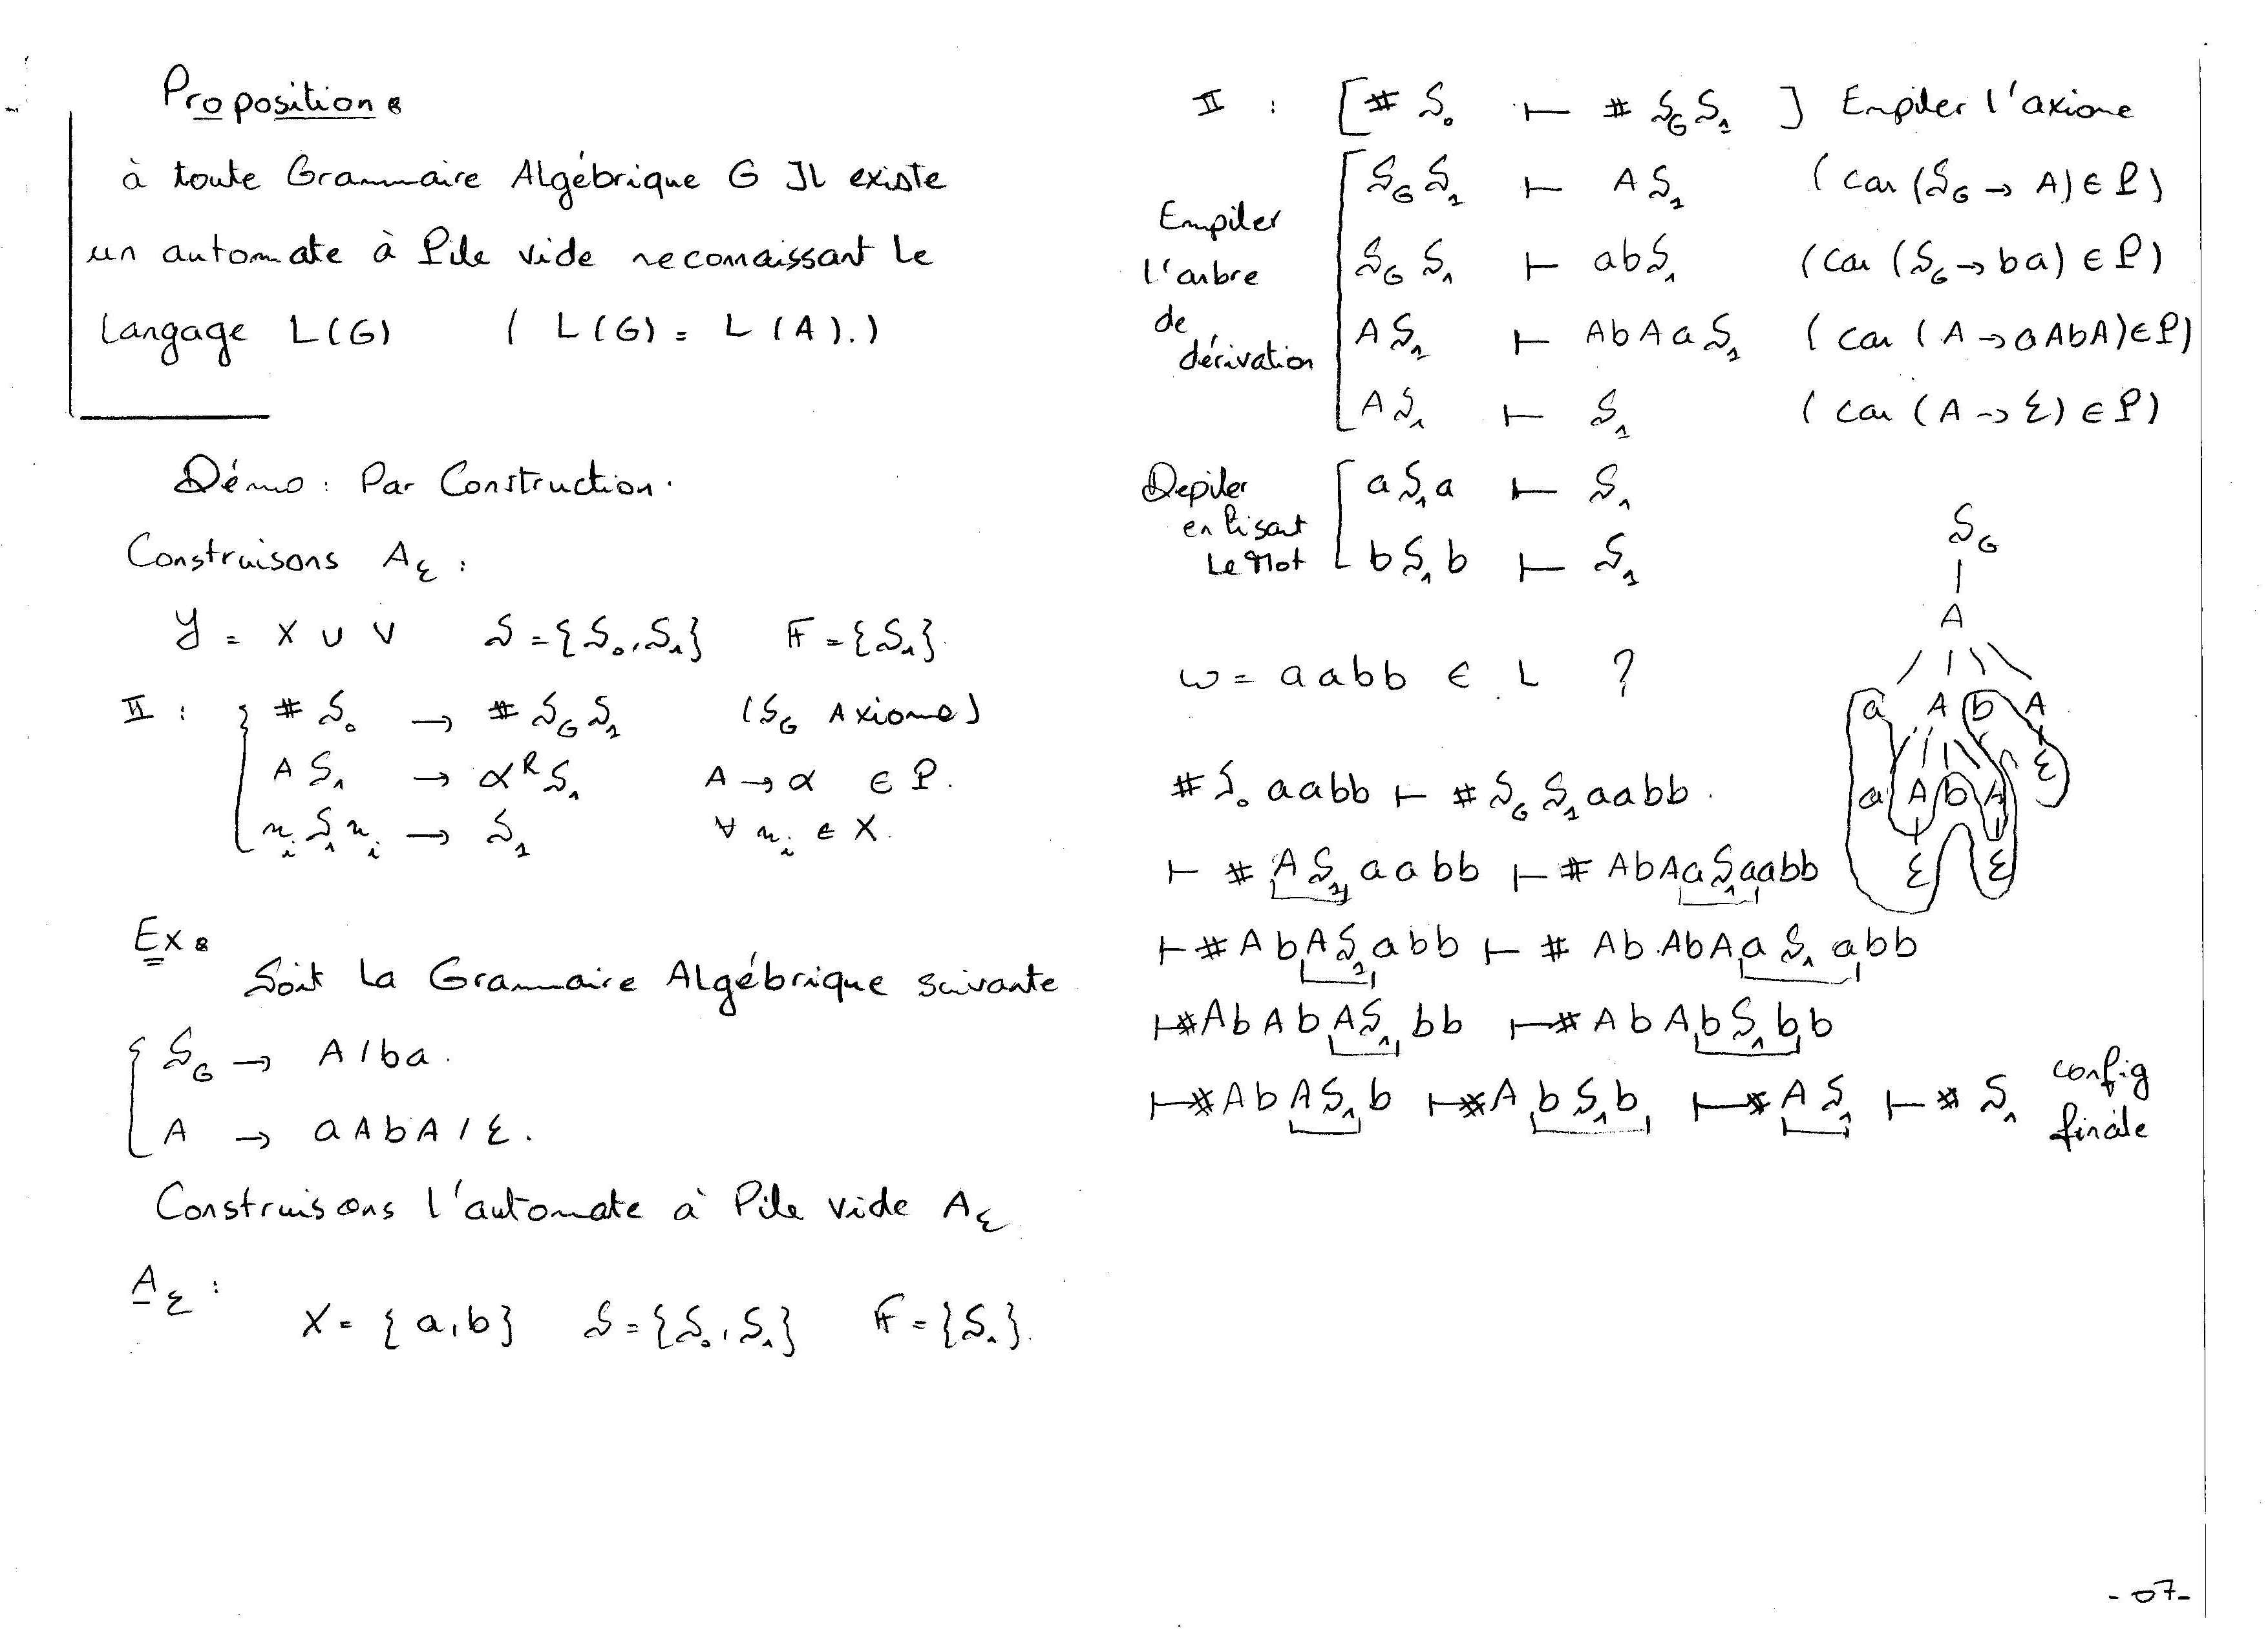 Proposition :
à toute Grammaire Algébrique G Il existe
un automate à Pile vide reconnaissant le
langage L(G) ( L(G) = L(A).)
Démo : Par Construction.
Construisons A_ε :
Y = X ∪ V S = {S₀, S₁} F = {S₁}.
II : { # S₀ → # S_G S₁ (S_G Axiome)
A S₁ → α^R S₁ A → α ∈ P.
x_i S₁ x_i → S₁ ∀ x_i ∈ X.
Ex :
Soit la Grammaire Algébrique suivante
{ S_G → A / ba.
A → aAbA / ε.
Construisons l'automate à Pile vide A_ε
A_ε :
X = {a, b} S = {S₀, S₁} F = {S₁}.
II : [ # S₀ ⊢ # S_G S₁ ] Empiler l'axiome
Empiler
l'arbre
de
dérivation
S_G S₁ ⊢ A S₁ ( car (S_G → A) ∈ P)
S_G S₁ ⊢ abS₁ (car (S_G → ba) ∈ P)
A S₁ ⊢ AbAaS₁ ( car ( A → aAbA) ∈ P)
A S₁ ⊢ S₁ ( car ( A → ε) ∈ P)
Depiler
en lisant
Le Mot
a S₁ a ⊢ S₁
b S₁ b ⊢ S₁
ω = aabb ∈ L ?
# S₀ aabb ⊢ # S_G S₁ aabb.
⊢ # A S₁ aabb ⊢ # AbAaS₁aabb
⊢ # AbAS₁abb ⊢ # AbAbAaS₁abb
⊢ # AbAbAS₁bb ⊢ # AbAbS₁bb
⊢ # AbAS₁b ⊢ # AbS₁b ⊢ # AS₁ ⊢ # S₁ config
finale
S_G
A
a A b A
a A b A ε
ε ε
- 07-